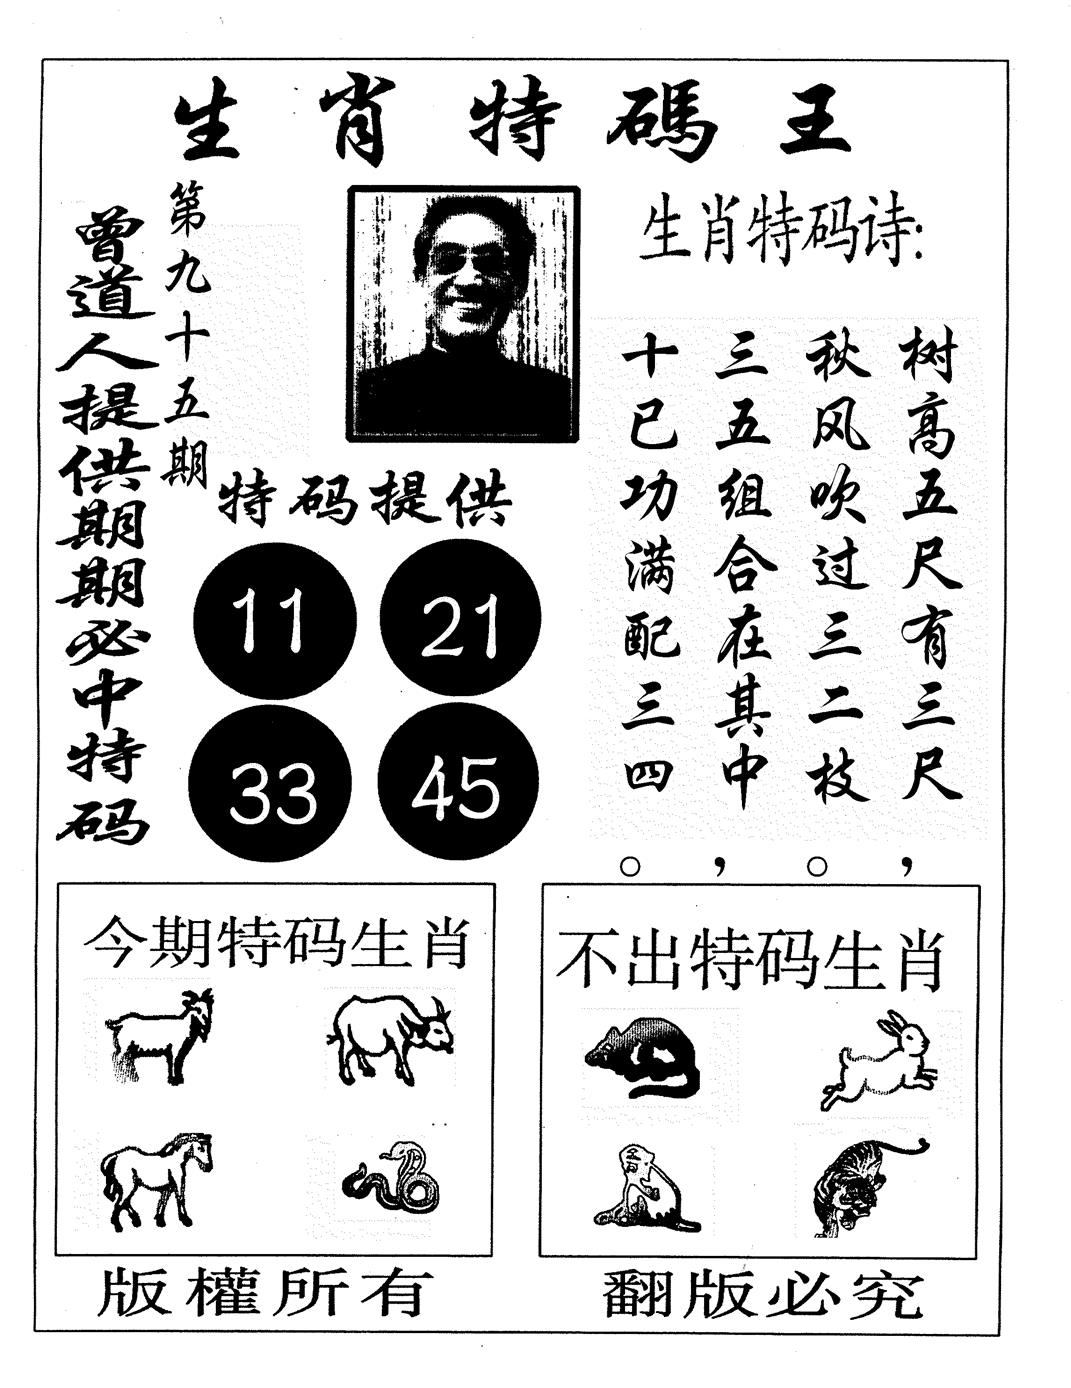 生肖特碼王
第九十五期
曾道人提供期期必中特码
生肖特码诗:
树高五尺有三尺,
秋风吹过三二枝。
三五组合在其中,
十已功满配三四。
特码提供
11 21
33 45
今期特码生肖
不出特码生肖
版權所有
翻版必究